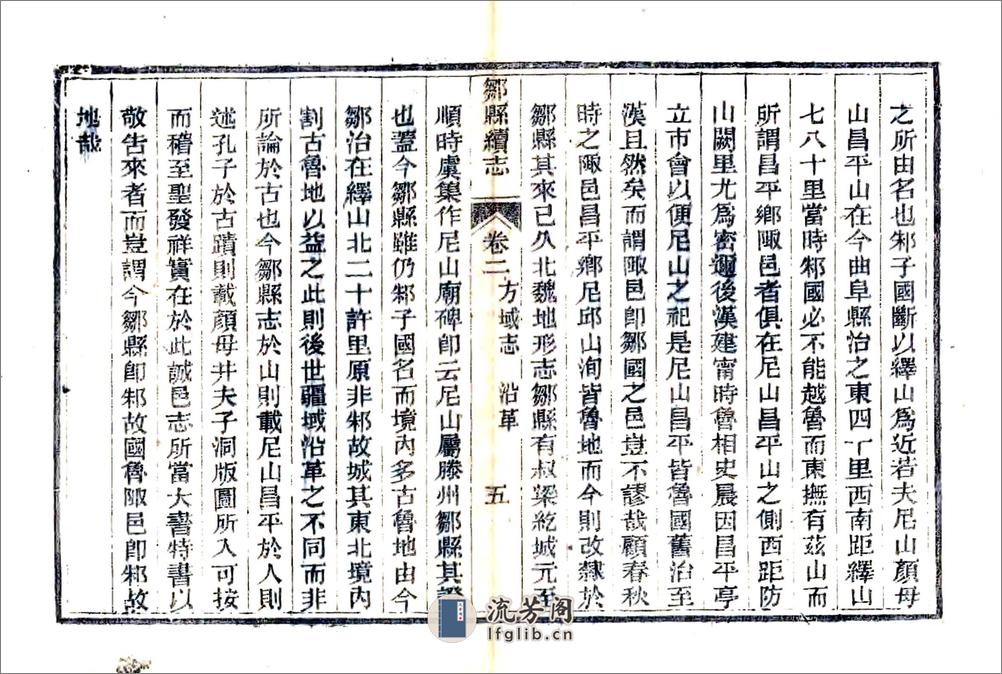 之所由名也邾子國斷以繹山爲近若夫尼山顏母
山昌平山在今曲阜縣治之東四十里西南距繹山
七八十里當時邾國必不能越魯而東撫有茲山而
所謂昌平鄉陬邑者俱在尼山昌平山之側西距防
山闕里尤爲密邇後漢建甯時魯相史晨因昌平亭
立市會以便尼山之祀是尼山昌平皆魯國舊治至
漢且然矣而謂陬邑卽鄒國之邑豈不謬哉顧春秋
時之陬邑昌平鄉尼邱山洵皆魯地而今則改隸於
鄒縣其來已久北魏地形志鄒縣有叔梁紇城元至
鄒縣續志 卷二 方域志 沿革 五
順時虞集作尼山廟碑卽云尼山屬滕州鄒縣其證
也蓋今鄒縣雖仍邾子國名而境內多古魯地由今
鄒治在繹山北二十許里原非邾故城其東北境內
割古魯地以益之此則後世疆域沿革之不同而非
所論於古也今鄒縣志於山則載尼山昌平於人則
述孔子於古蹟則載顏母井夫子洞版圖所入可按
而稽至聖發祥實在於此誠邑志所當大書特書以
敬告來者而豈謂今鄒縣卽邾故國魯陬邑卽邾故
地哉
流芳阁
lfglib.cn